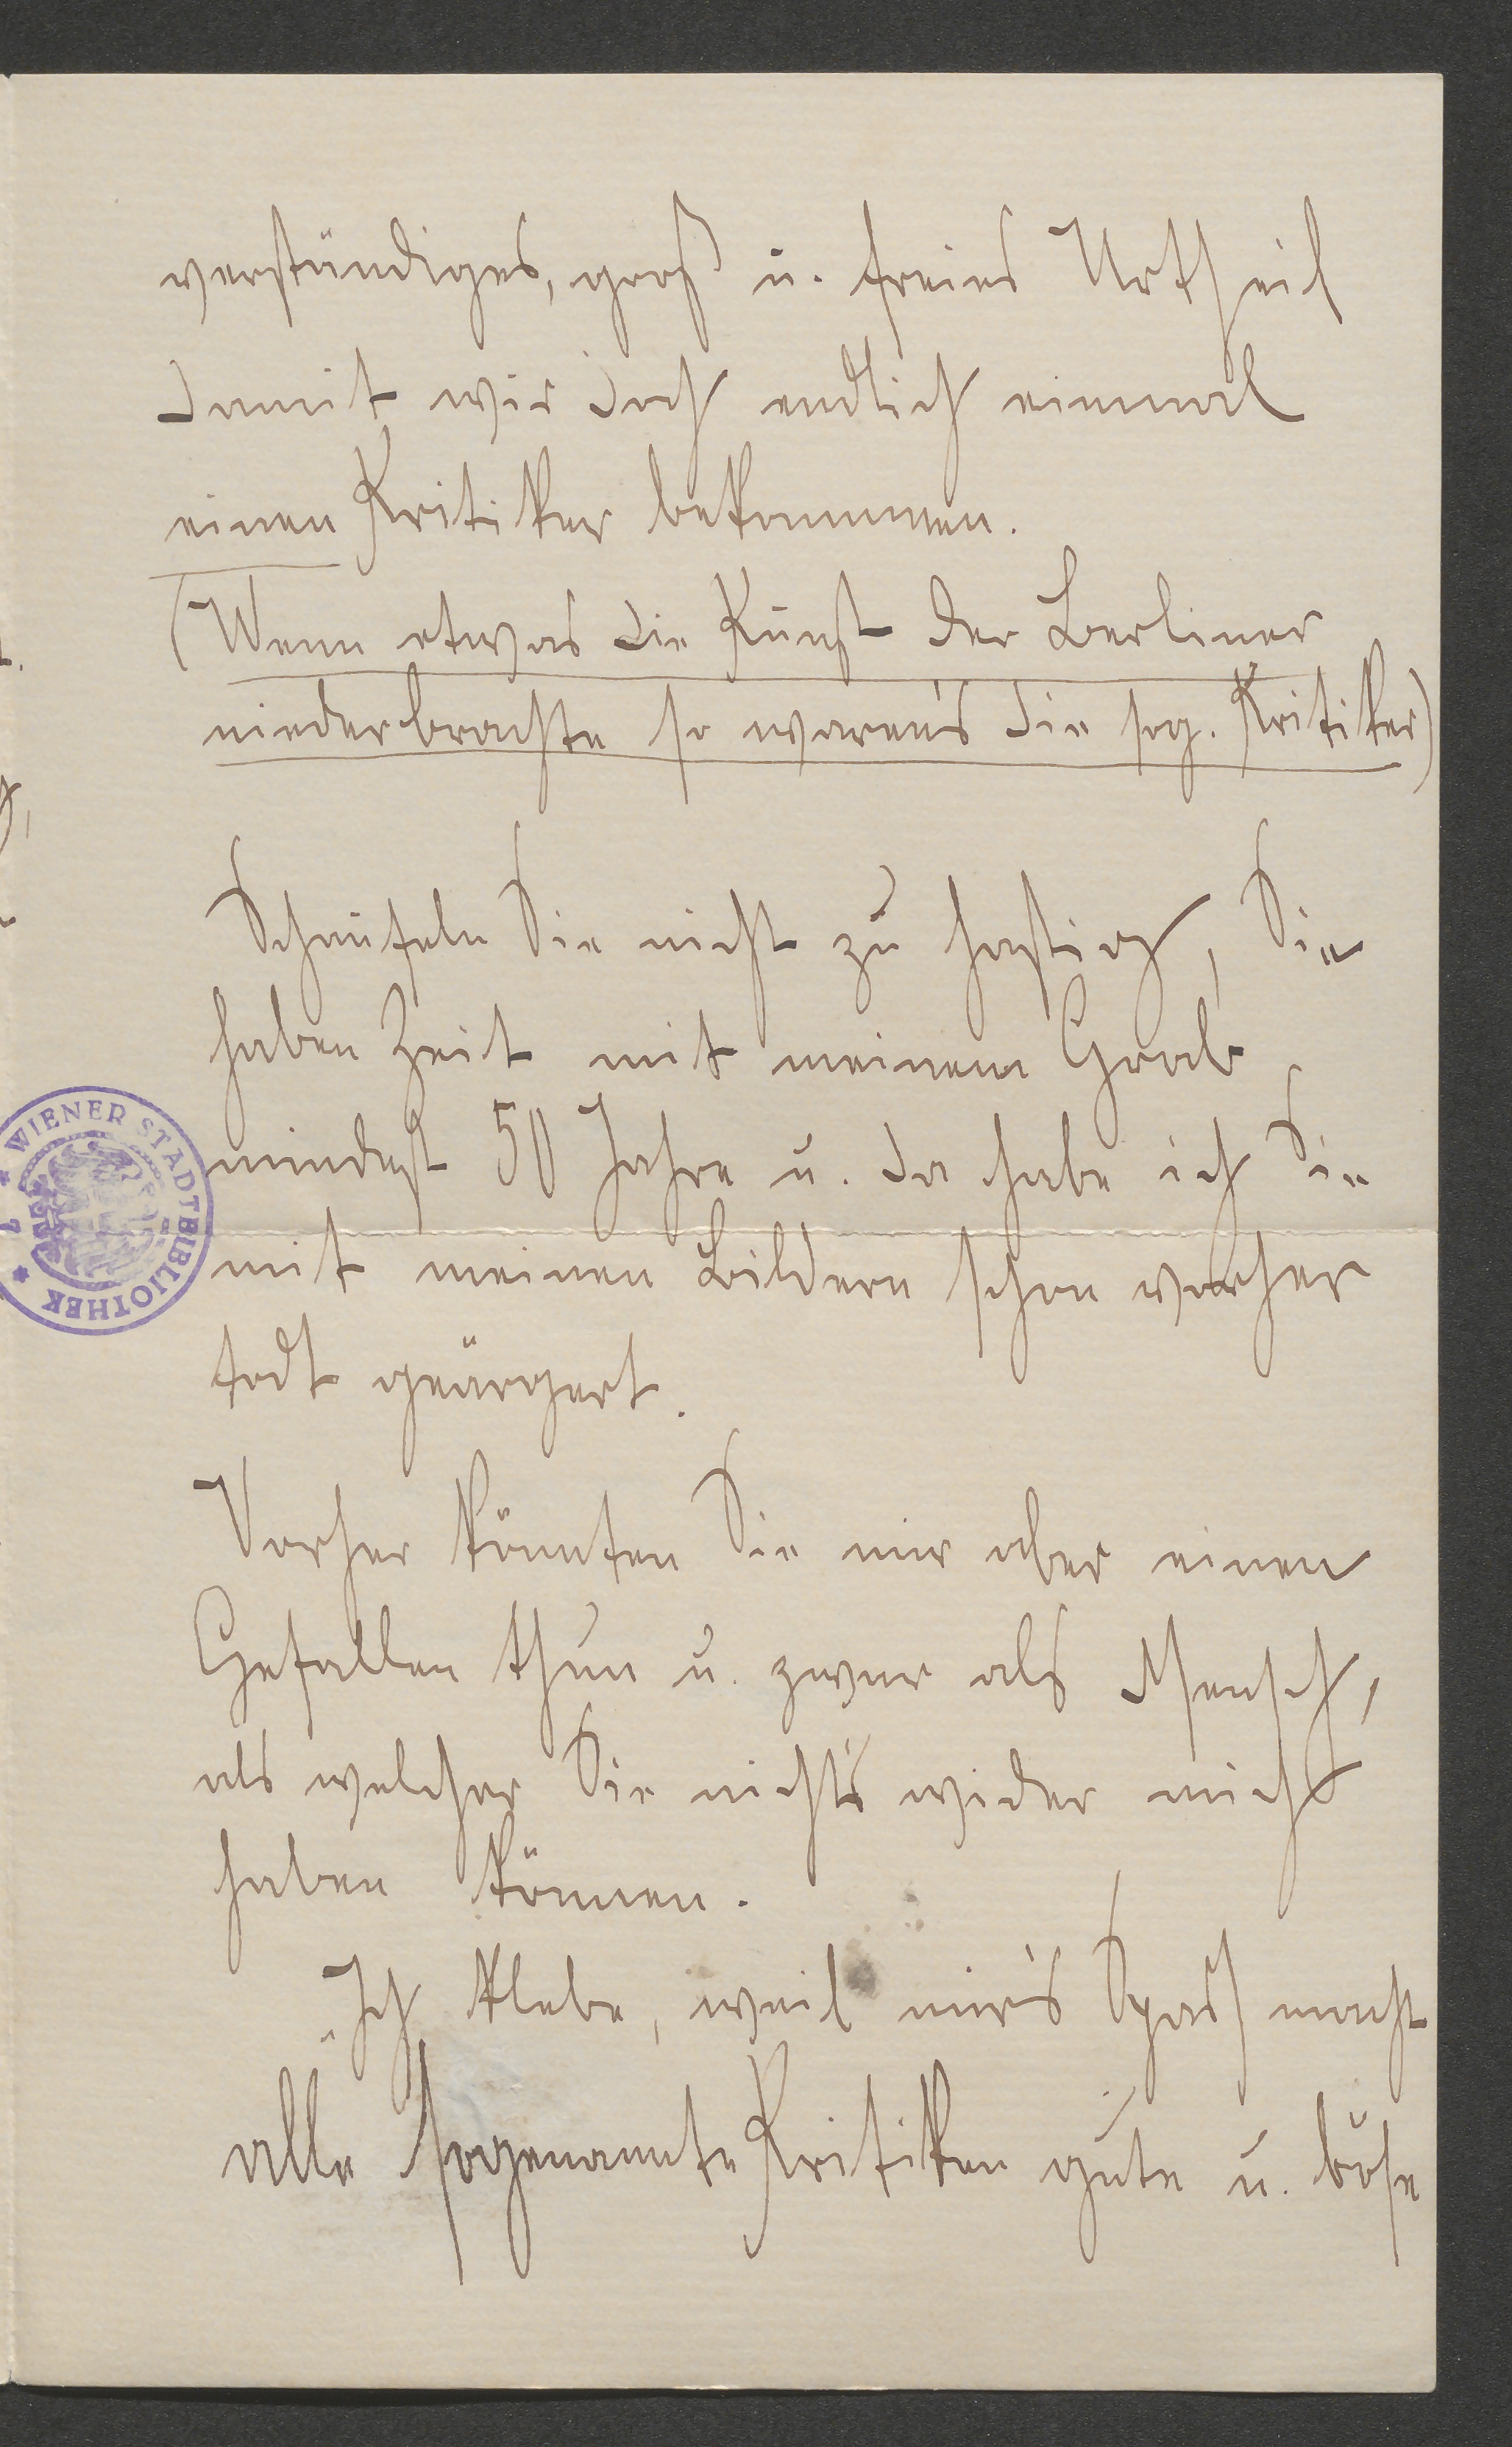 verständiges, groß u. freies Urtheil
damit wir doch endlich einmal
einen Kritiker bekommen.
(Wenn etwas die Kunst der Berliner
niederbrachte so waren's die sog. Kritiker)
Schaufeln Sie nicht zu hastig, Sie
haben Zeit mit meinem Grab
mindest 50 Jahre u. da habe ich Sie
mit meinen Bildern schon vorher
todt geärgert.
Vorher könnten Sie mir aber einen
Gefallen thun u. zwar als Mensch,
als welcher Sie nichts wider mich
haben können.
Ich klebe, weil mir's Spass macht
alle sogenannte Kritiken gute u. böse
WIENER STADTBIBLIOTHEK